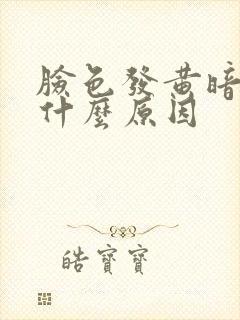 臉色發黃暗
什麼原因
皓寶寶